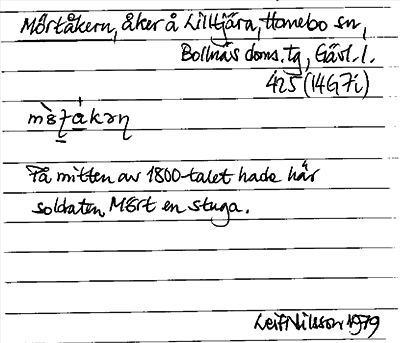 Mörtåkern, åker å Lilltjära, Hanebo sn,
Bollnäs doms. tg, Gävl. l.
425 (14G7i)
På mitten av 1800-talet hade här
soldaten Mört en stuga.
Leif Nilsson 1979